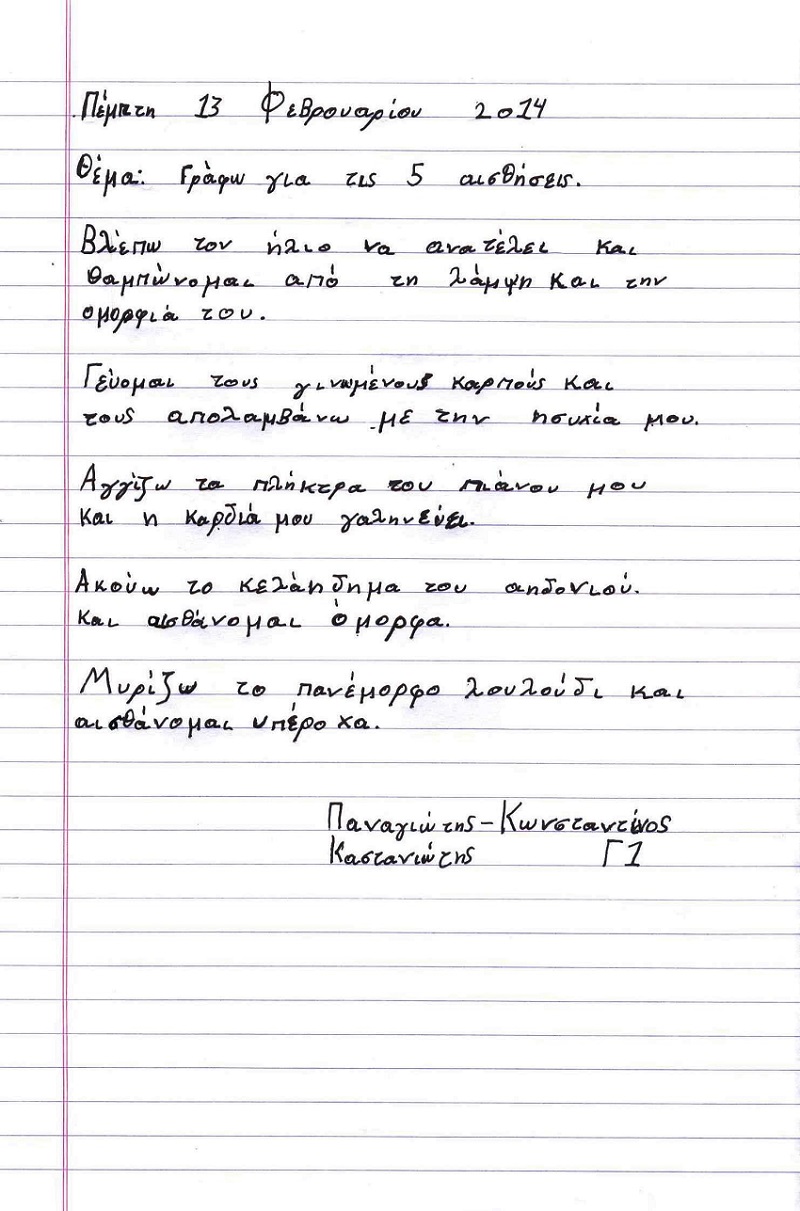 Πέμπτη 13 Φεβρουαρίου 2014
Θέμα: Γράφω για τις 5 αισθήσεις.
Βλέπω τον ήλιο να ανατέλει και
θαμπώνομαι από τη λάμψη και την
ομορφιά του.
Γεύομαι τους γινωμένους καρπούς και
τους απολαμβάνω με την ησυχία μου.
Αγγίζω τα πλήκτρα του πιάνου μου
και η καρδιά μου γαληνεύει.
Ακούω το κελάηδημα του αηδονιού.
και αισθάνομαι όμορφα.
Μυρίζω το πανέμορφο λουλούδι και
αισθάνομαι υπέροχα.
Παναγιώτης-Κωνσταντίνος
Καστανιώτης Γ1